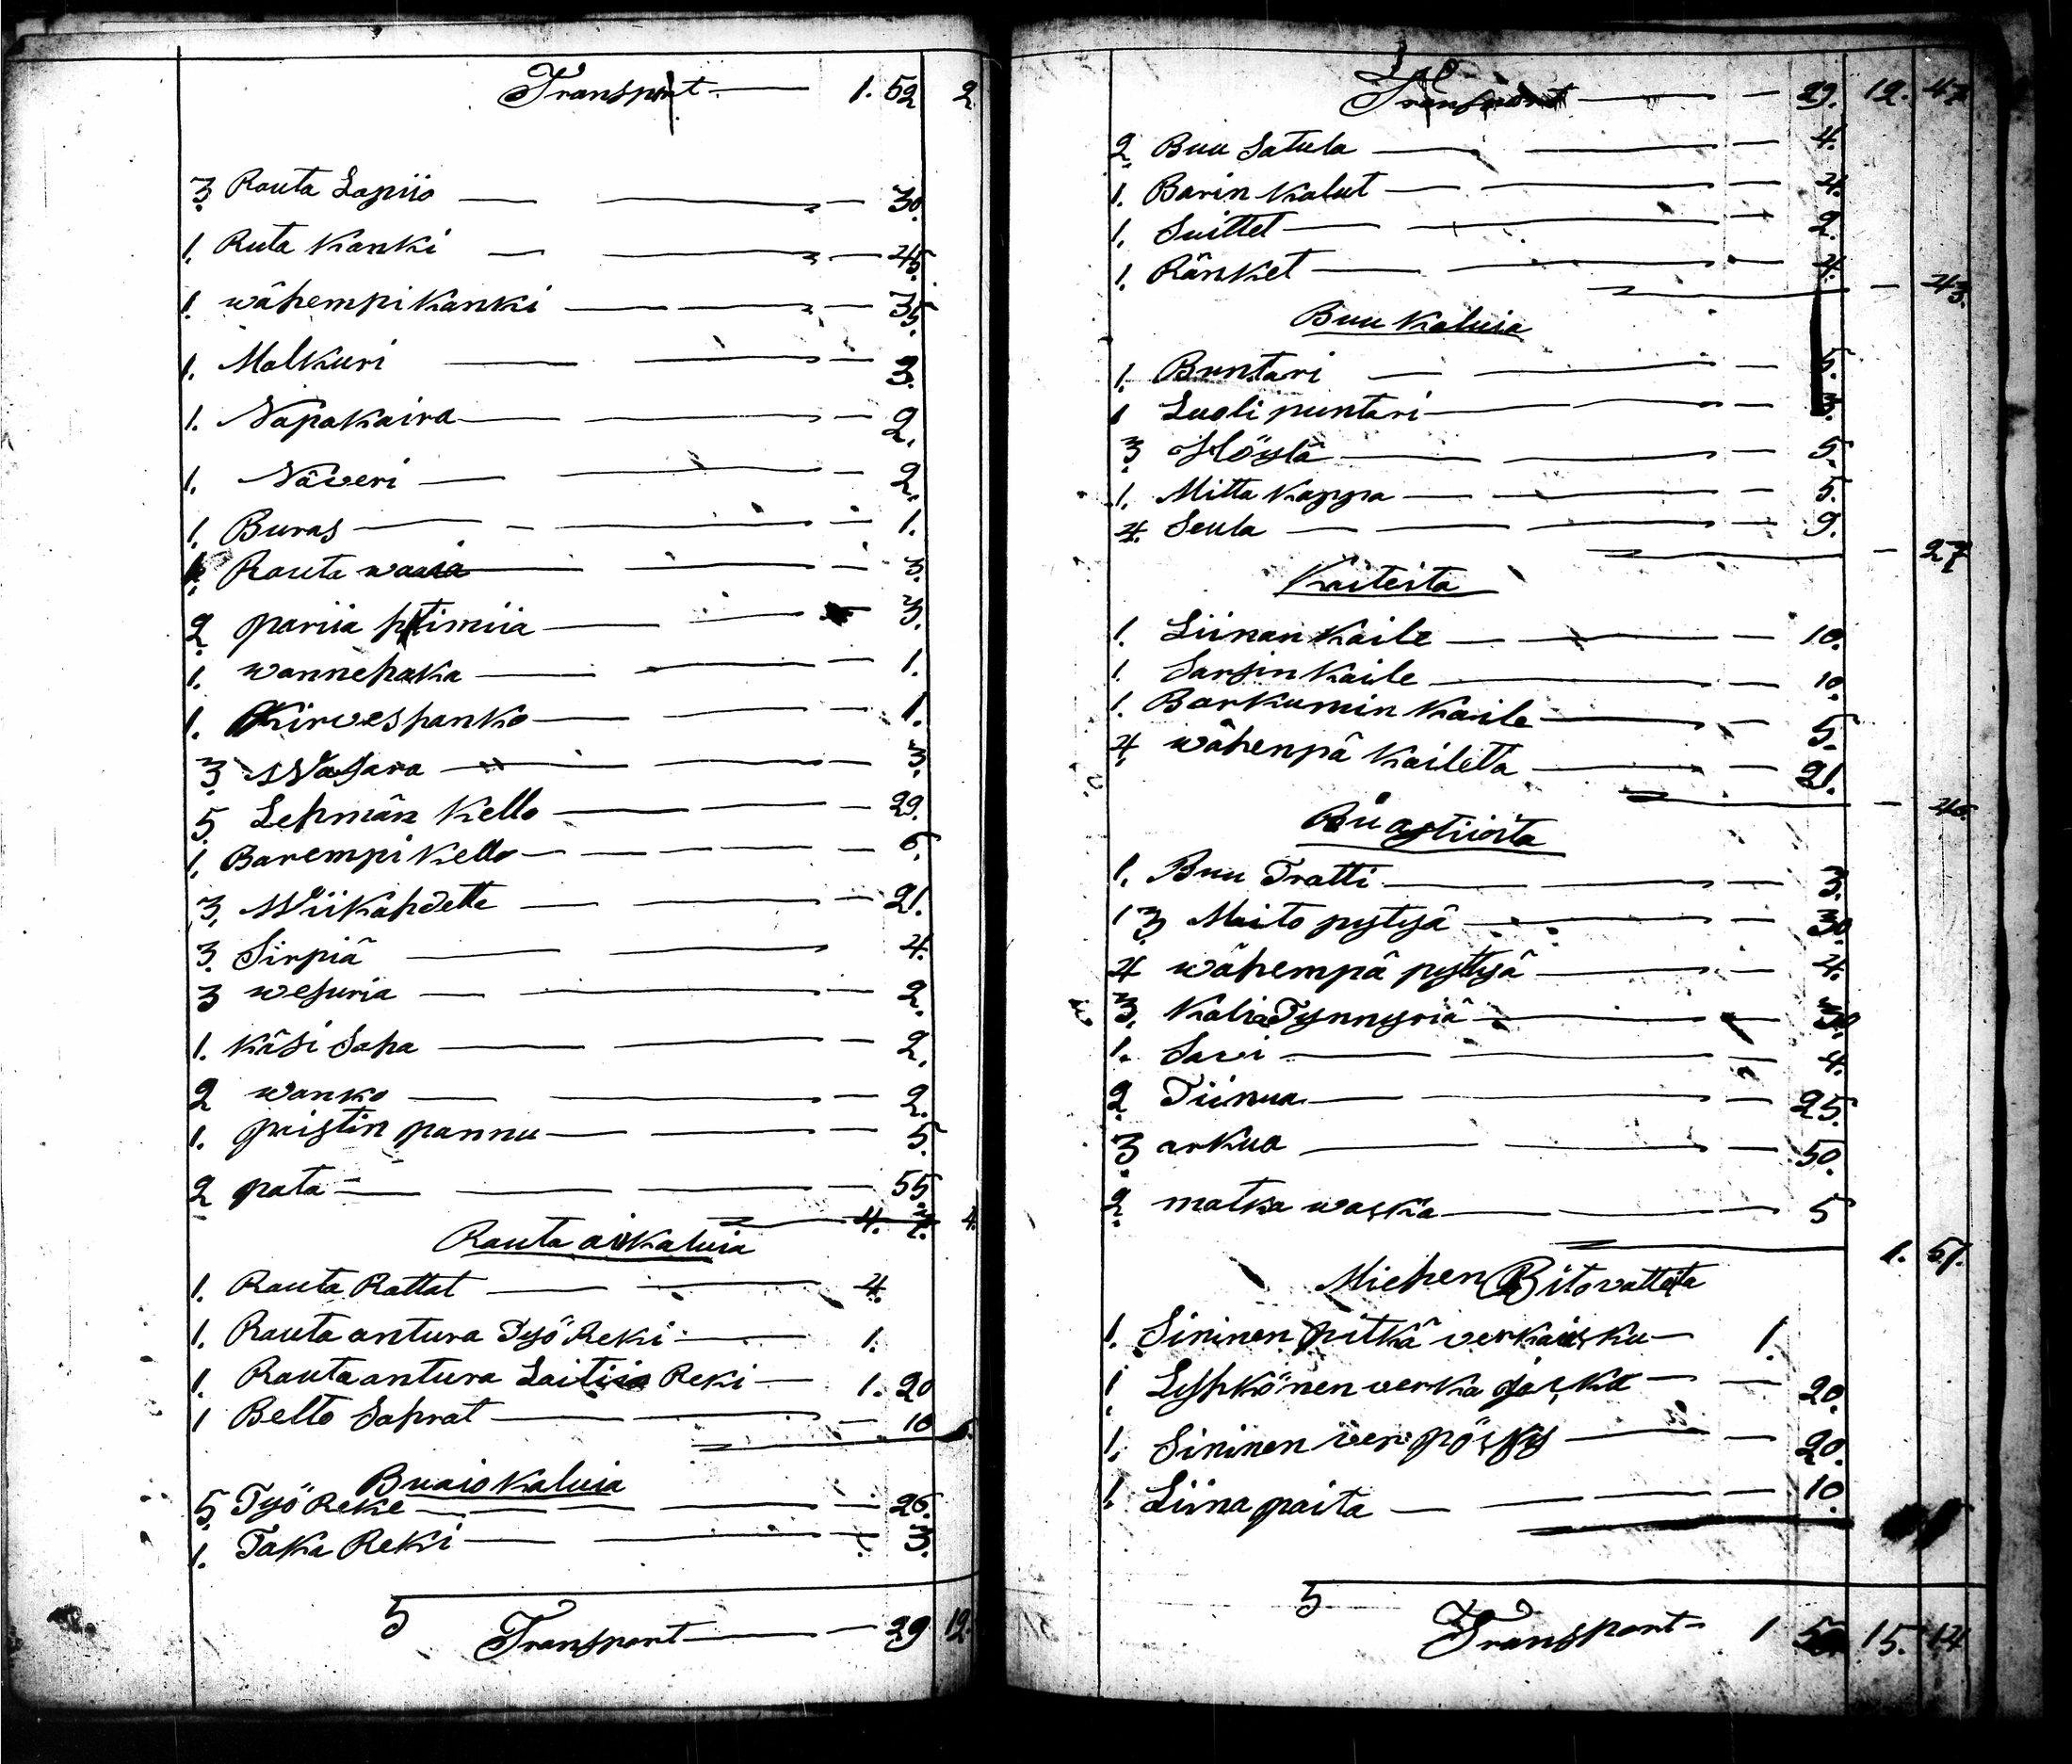 Transport 1. 52 2
3. Rauta Lapiio 30.
1. Ruta Kanki 45.
1. wähempi Kanki 35
1. Malkuri 3.
1. Napakaira 2.
1. Näveri 2.
1. Buras 1.
Rauta 3.
2. pariia 3.
1. wannehaka 1.
1. Kirves panko 1.
3. Wasara 3.
5. Lehmän Kello 29.
1. Barempi Kello 6.
3. Wiikahdette 21.
3. Sirpiä 4.
3 wesuria 2.
1. Käsi Saha 2.
2 wanko 2.
1. pristin pannu 5.
2 pata 55.
4. 7. 4.
Rauta aikaluia
1. Rauta Rattat 4.
1. Rauta antura Työ Reki 1.
1. Rauta antura Reki 1. 20
1 Belto Sahrat 10
Buaiokaluia
5. Työ Reke 26.
1. Taka Reki 3.
5
Transport 29 12.
Transport 29. 12. 47
2. Buu Satula 4.
1. Barin Kalut 4.
1. Suittet 2.
1. Ränket 4.
43.
Buu Kaluia
1. Buntari 5.
1 Luoli puntari 3.
3 Höylä 5.
1. Mitta Kappa 5.
4. Seula 9.
27
Kaiteita
1. Liinan Kaile 10.
1. Sarsin Kaile 10.
1. Barkumin Kaile 5.
4. wähenpä Kailetta 21.
46.
astioita
1. Buu Tratti 3.
13 Maito pytyä 30.
4 wähempä pytyä 4.
3. Kalia Tynnyriä 30.
1. Savi 4.
2. Tiinua 25.
3. arkua 50.
2. matka waska 5
1. 51.
Miehen Bitovatteita
1. Sininen pitkä 1.
1 verka 20.
1. Sininen 20.
1. Liina paita 10.
5
Transport 1 15. 14